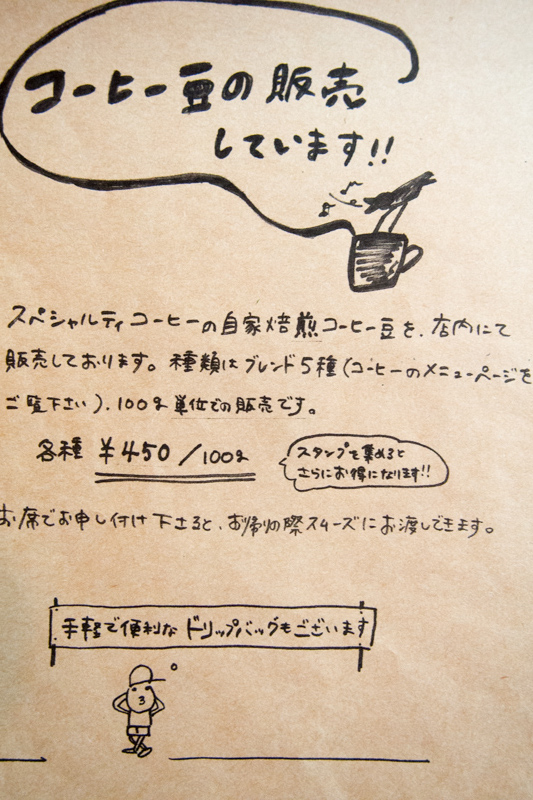 コーヒー豆の販売
しています!!
スペシャルティコーヒーの自家焙煎コーヒー豆を、店内にて
販売しております。種類はブレンド5種(コーヒーのメニューページを
ご覧下さい)、100g単位での販売です。
各種 ¥450/100g
スタンプを集めると
さらにお得になります!!
お席でお申し付け下さると、お帰りの際スムーズにお渡しできます。
手軽で便利なドリップバッグもございます